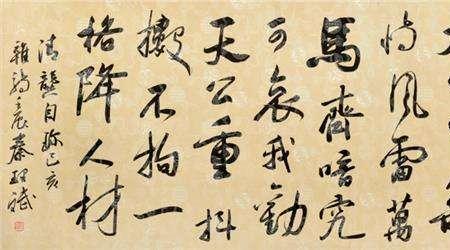 恃風雷萬
馬齊喑究
可哀我勸
天公重抖
擻不拘一
格降人材
清龔自珍己亥
雜詩壬辰秦